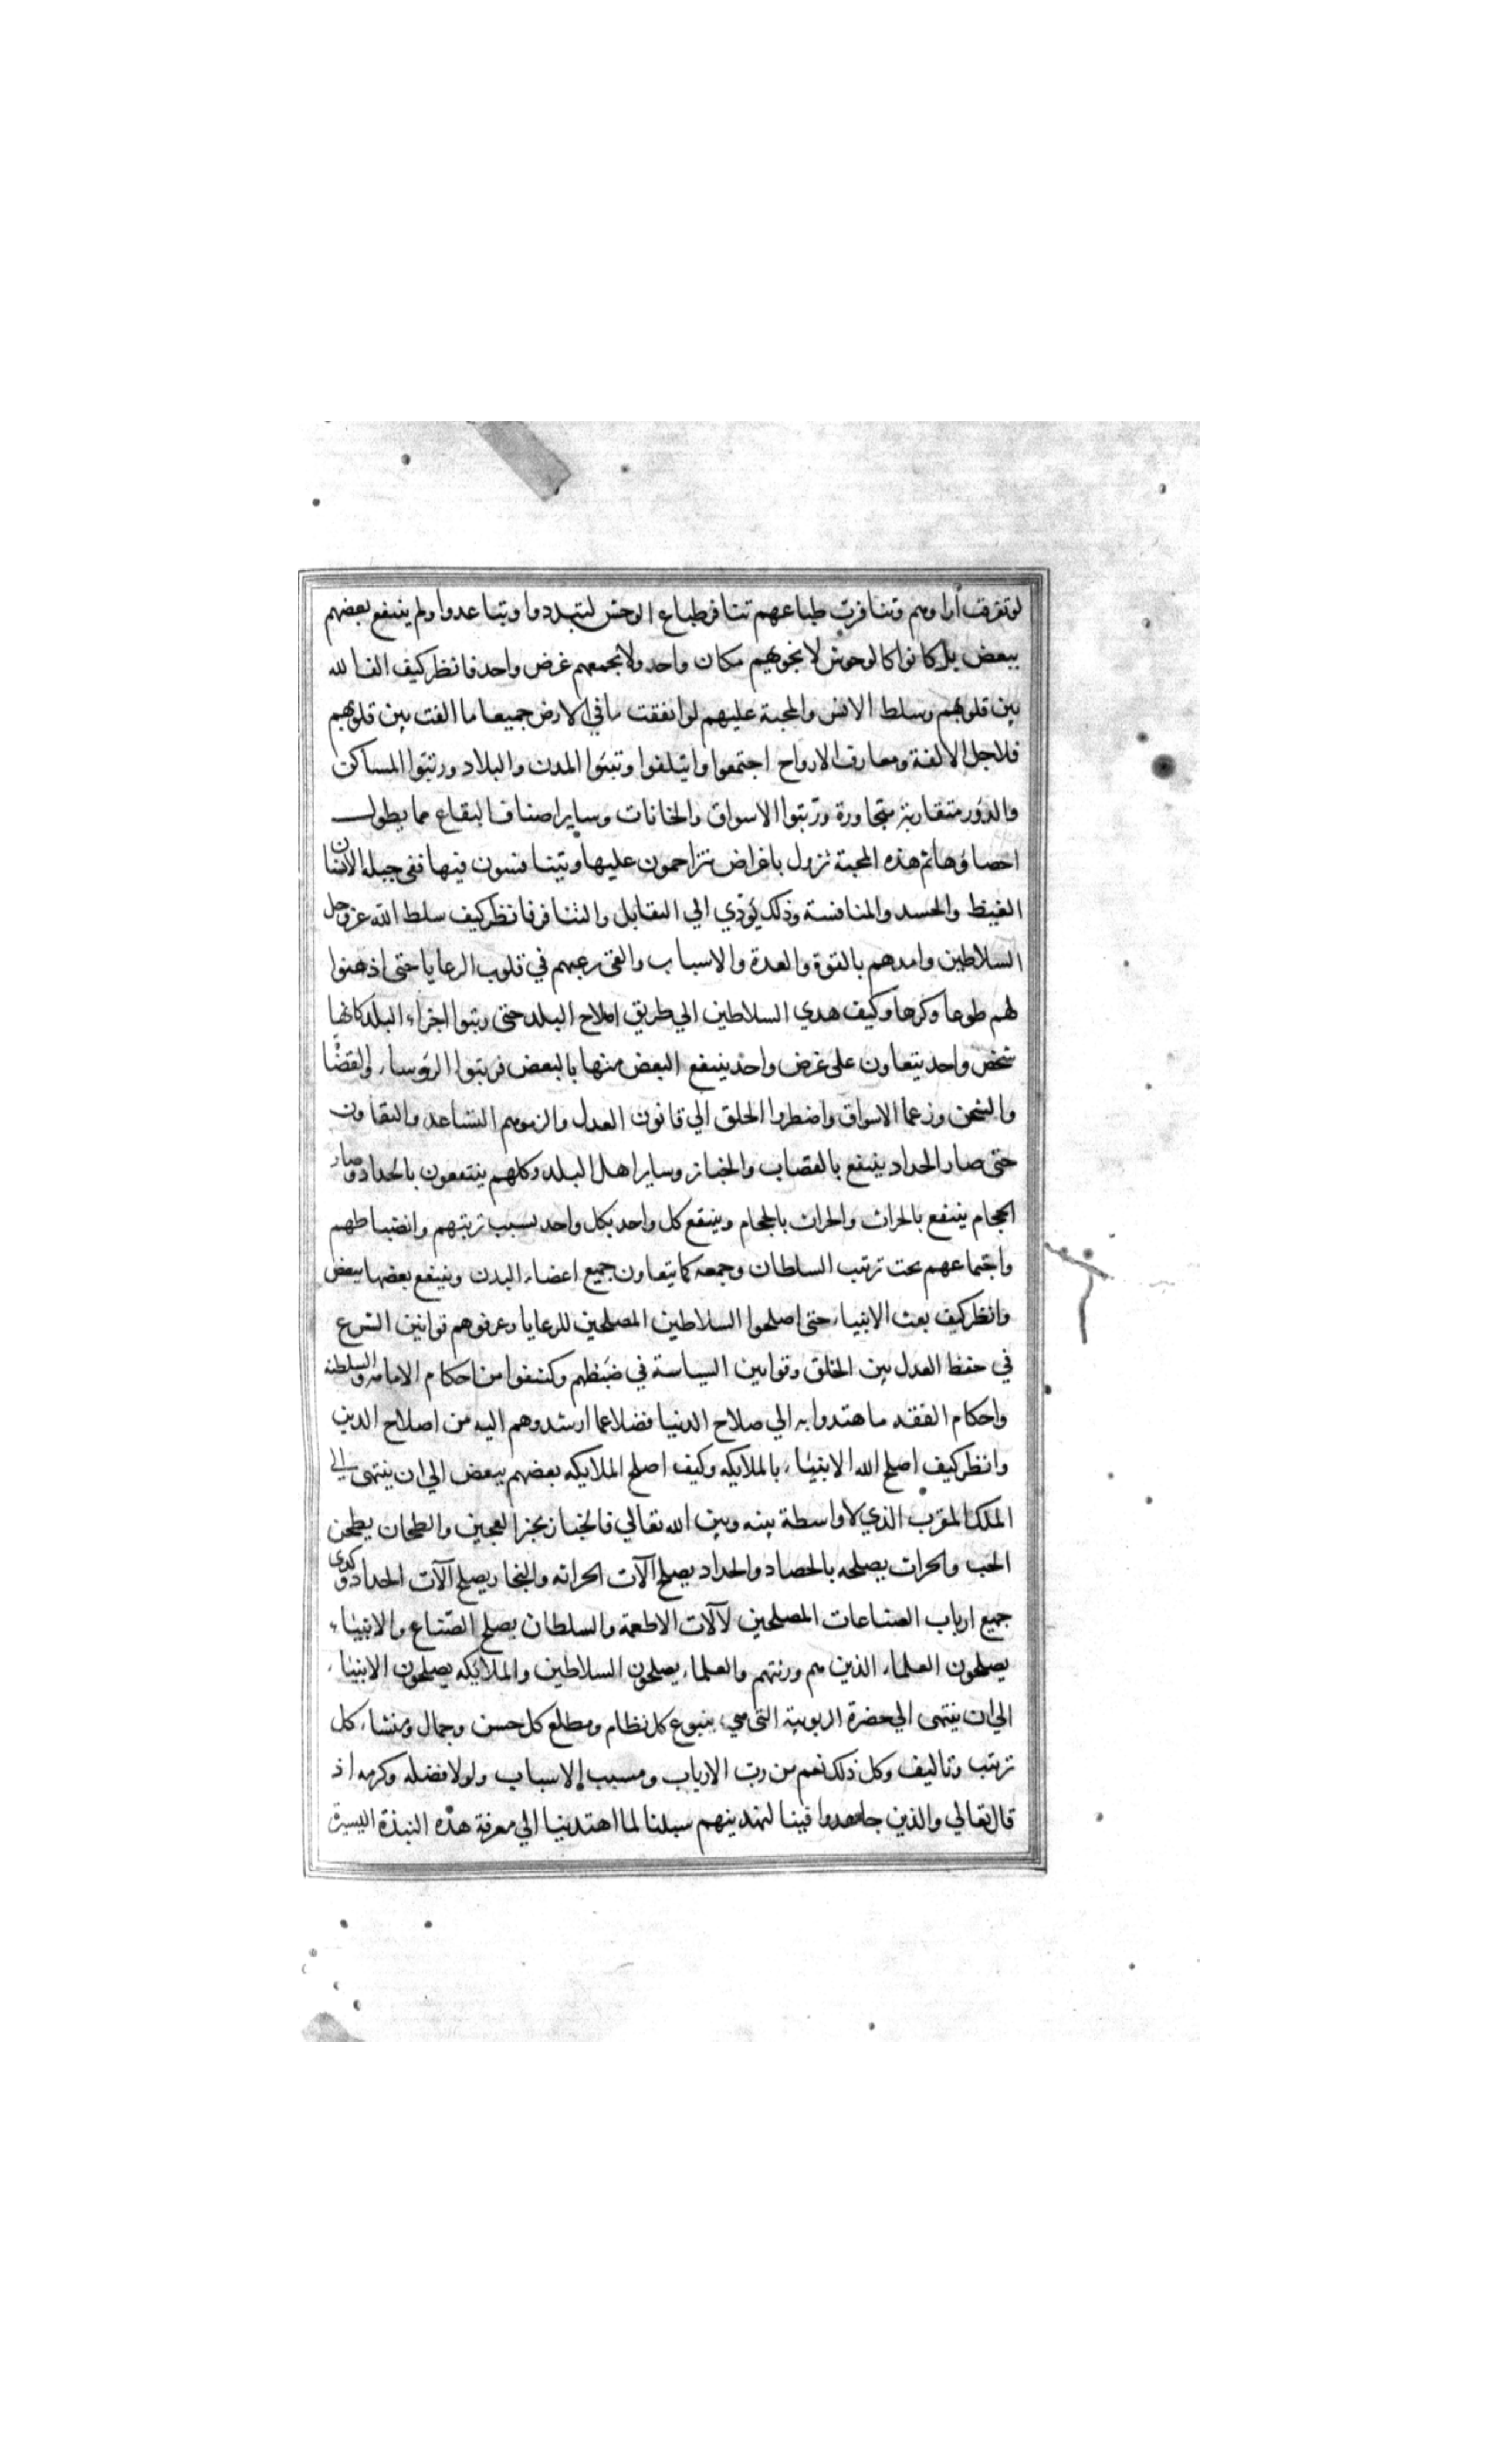 لو تفرقت أراوهم وتنافرت طباعهم تنافر طباع الوحش لتبددوا وتباعدوا ولم ينتفع بعضهم
ببعض بل كانوا كالوحوش لا يحويهم مكان واحد ولا يجمعهم غرض واحد فانظر كيف الف الله
بين قلوبهم وسلط الانس والمحبة عليهم لو انفقت ما في الارض جميعا ما الفت بين قلوبهم
فلاجل الالفة ومعارف الارواح اجتمعوا وايتلفوا وتبنوا المدن والبلاد ورتبوا المساكن
والدور متقاربة متجاورة ورتبوا الاسواق والخانات وساير اصناف البقاع مما يطول
احصاؤها ثم هذه المحبة تزول باغراض يتزاحمون عليها ويتنافسون فيها ففي جبلة الانسان
الغيظ والحسد والمنافسة وذلك يؤدي الي التقابل والتنافر فانظر كيف سلط الله عز وجل
السلاطين وامدهم بالقوة والعدة والاسباب والقى رعبهم في قلوب الرعايا حتى اذعنوا
لهم طوعا وكرها وكيف هدي السلاطين الي طريق اصلاح البلد حتى رتبوا اجزاء البلد كانها
شخص واحد يتعاون على غرض واحد ينتفع البعض منها بالبعض فرتبوا الرؤساء والقضاة
والشحن وزعما الاسواق واضطروا الخلق الي قانون العدل والزموهم التساعد والتعاون
حتى صار الحداد ينتفع بالقصاب والخباز وساير اهل البلد وكلهم ينتفعون بالحداد وصار
الحجام ينتفع بالحراث والحراث بالحجام وينتفع كل واحد بكل واحد بسبب ترتبهم وانضباطهم
واجتماعهم تحت ترتب السلطان وجمعه كما يتعاون جميع اعضاء البدن وينتفع بعضها ببعض
وانظر كيف بعث الانبياء حتى اصلحوا السلاطين المصلحين للرعايا وعرفوهم قوانين الشرع
في حفظ العدل بين الخلق وقوانين السياسة في ضبطهم وكشفوا من احكام الامامة والسلطنة
واحكام الفقه ما هتدوا به الي صلاح الدنيا فضلا عما ارشدوهم اليه من اصلاح الدين
وانظر كيف اصلح الله الانبياء بالملايكه وكيف اصلح الملايكه بعضهم ببعض الي ان ينتهى الي
الملك المقرب الذي لا واسطة بينه وبين الله تعالي فالخباز يخبز العجين والطحان يطحن
الحب والحراث يصلحه بالحصاد والحداد يصلح آلات الحراثه والنجار يصلح آلات الحداد وكدى
جميع ارباب الصناعات المصلحين لآلات الاطعمة والسلطان يصلح الصناع والانبياء
يصلحون العلماء الذين هم ورثتهم والعلماء يصلحون السلاطين والملايكه يصلحون الانبياء
الي ان ينتهى الي حضرة الربوبية التى هي ينبوع كل نظام ومطلع كل حسن وجمال ومنشاء كل
ترتب وتاليف وكل ذلك نعم من رب الارباب ومسبب الاسباب ولولا فضله وكرمه اذ
قال تعالي والذين جاهدوا فينا لنهدينهم سبلنا لما اهتدينا الي معرفة هذه النبذة اليسيرة